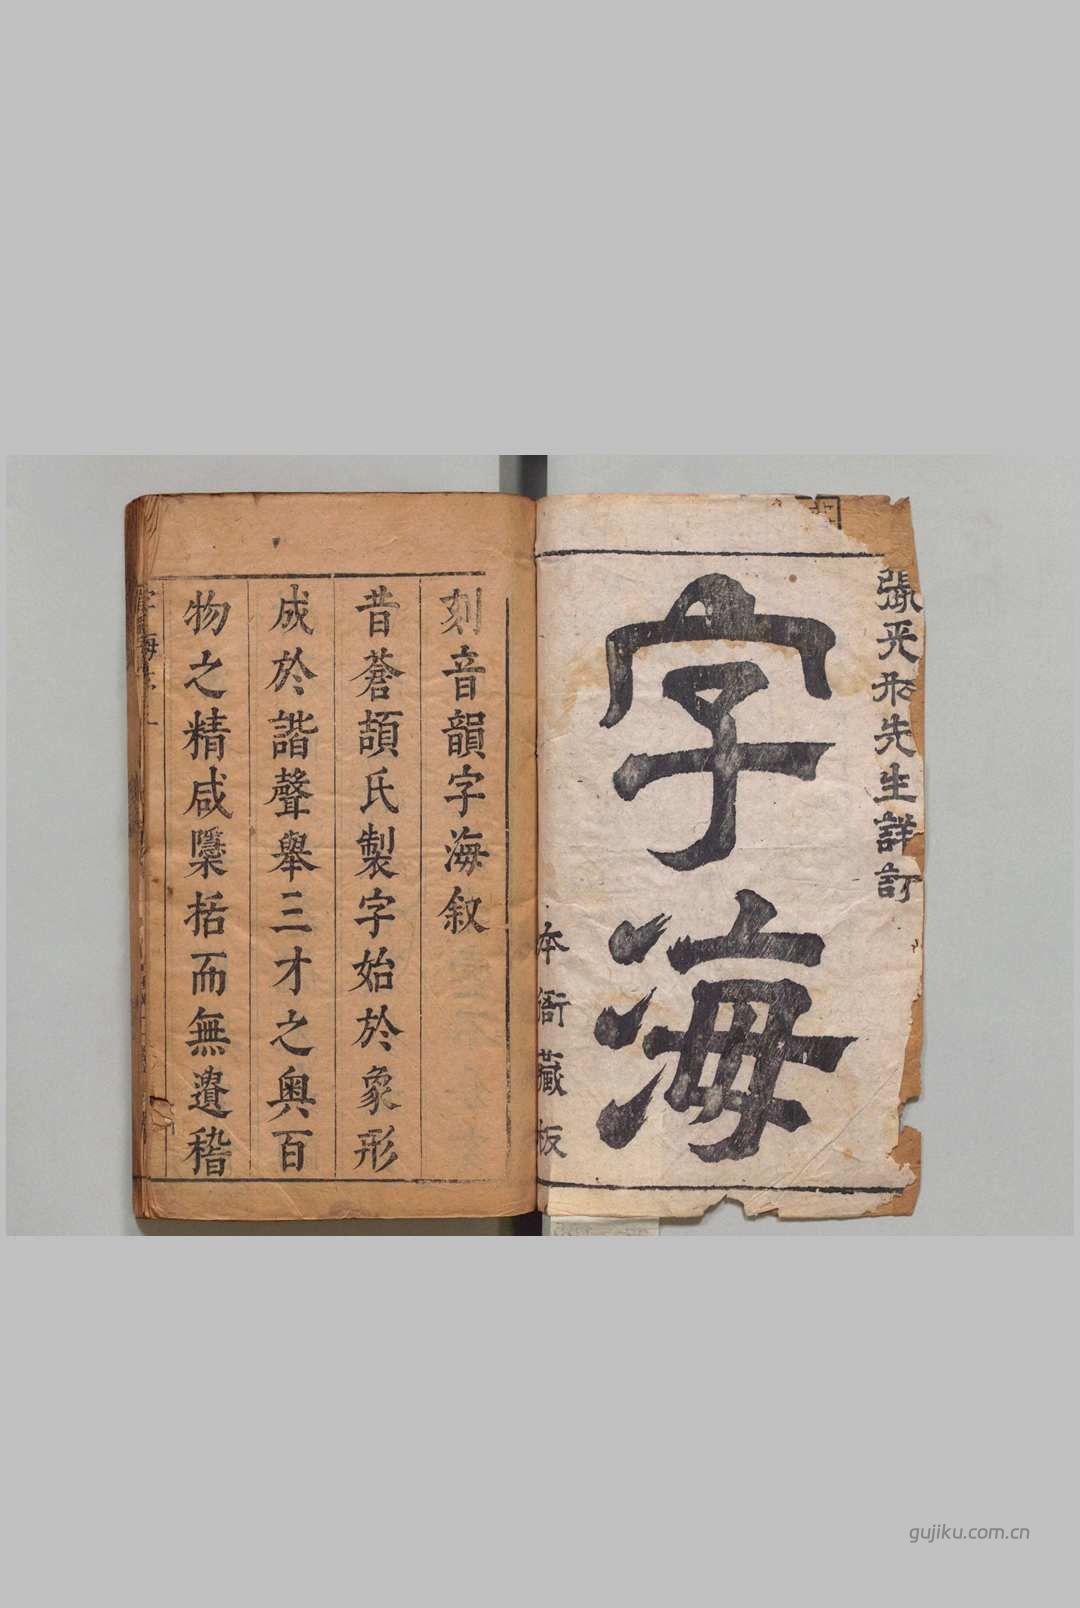 張天如先生詳訂
字海
本衙藏板
刻音韻字海叙
昔蒼頡氏製字始於象形
成於諧聲舉三才之奥百
物之精咸隱括而無遺稽
gujiku.com.cn